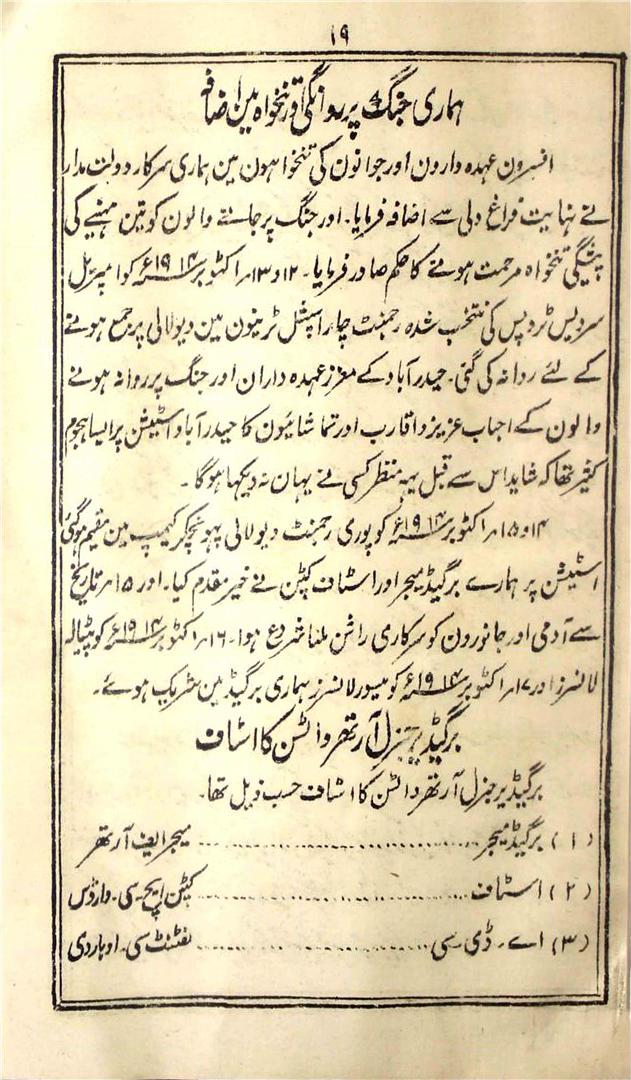 ۱۹
ہماری جنگ پر روانگی اور تنخواہ مین اضافہ
افسرون عہدہ دارون اور جوانون کی تنخواہون مین ہماری سرکار دولت مدار
نے نہایت فراغ دلی سے اضافہ فرمایا۔ اور جنگ پر جانے والون کو تین مہینے کی
پیشگی تنخواہ مرحمت ہونے کا حکم صادر فرمایا۔ ۱۲ و ۱۳ر اکٹوبر ۱۹۱۴ء کو امپریل
سرویس ٹروپس کی منتخب شدہ رجمنٹ چار اسپشل ٹرینون مین دیولالی پر جمع ہونے
کے لئے روانہ کی گئی۔ حیدرآباد کے معزز عہدہ داران اور جنگ پر روانہ ہونے
والون کے احباب عزیز و اقارب اور تماشائیون کا حیدرآباد اسٹیشن پر ایسا ہجوم
کثیر تھا کہ شاید اس سے قبل یہہ منظر کسی نے یہان نہ دیکھا ہوگا۔
۱۴ و ۱۵ر اکٹوبر ۱۹۱۴ء کو پوری رجمنٹ دیولالی پہونچکر کیمپ مین مقیم ہوگئی
اسٹیشن پر ہمارے برگیڈ میجر اور اسٹاف کپٹن نے خیر مقدم کیا۔ اور ۱۵ر تاریخ
سے آدمی اور جانورون کو سرکاری راشن ملنا شروع ہوا۔ ۱۶ر اکٹوبر ۱۹۱۴ء کو پٹیالہ
لانسرز اور ۱۷ر اکٹوبر ۱۹۱۴ء کو میسور لانسرز ہماری برگیڈ مین شریک ہوئے۔
برگیڈیر جنرل آرتھر واٹسن کا اسٹاف
برگیڈیر جنرل آرتھر واٹسن کا اسٹاف حسب ذیل تھا۔
(۱) برگیڈ میجر ........................ میجر ایف آرتھر
(۲) اسٹاف ........................ کپٹن ایچ۔سی۔وارڈس
(۳) اے۔ڈی۔سی ........................ لفٹنٹ سی۔